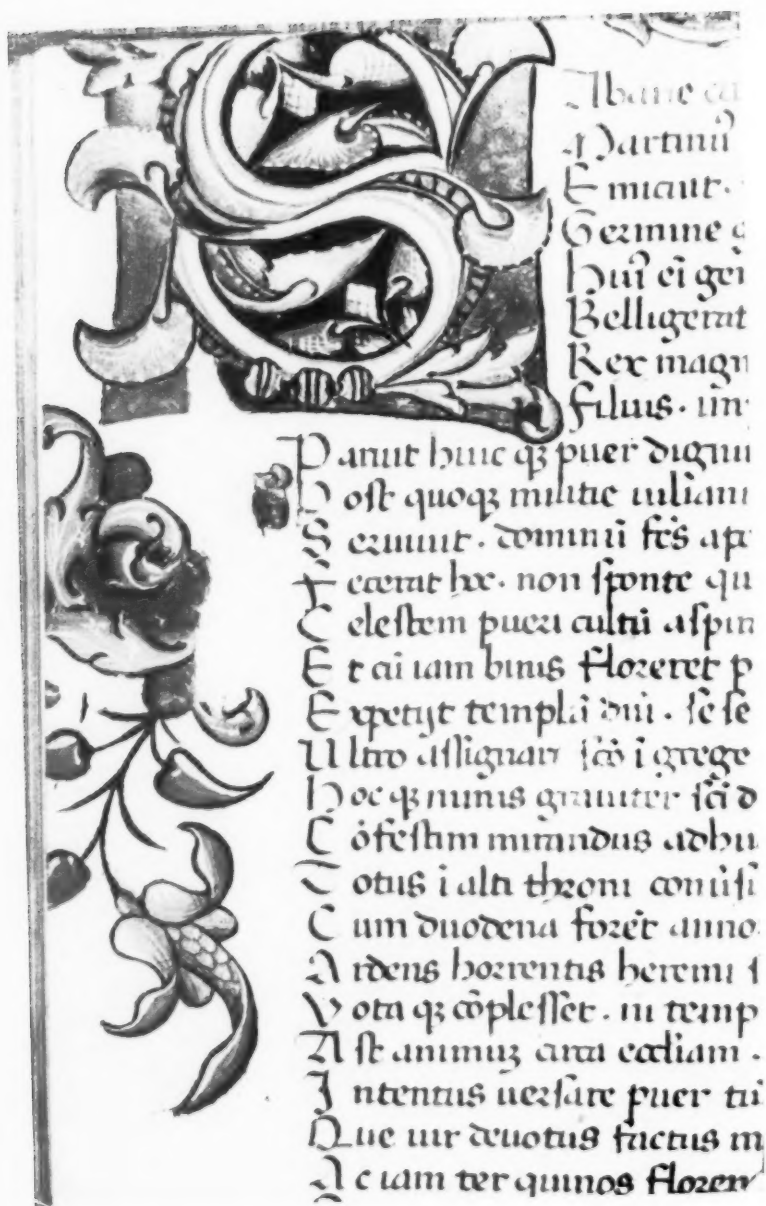 S Abarie ca
Martinus
Emicuit.
Germine g
Huic ei gen
Belligerat
Rex magn
Filius. im
Paruit huic q; puer dignu
Post quoq; militie iuliani
Seruiuit. dominū fr̄s ap
Fecerat hoc. non sponte qu
Celestem pueri cultū aspir
Et cū iam binis floreret p
Expetijt templū dn̄i. se se
Ultro assignari sc̄o ī grege
Hoc q; nimis grauiter sc̄i d
Cōfestim mirandus adhu
Totus ī alti throni comisi
Cum duodena forēt anno
Ardens horrentis heremi s
Vota q; cōplesset. in temp
Ast animuz circa eccliam.
Intentus uersare puer tū
Que uir deuotus factus m
Ac iam ter quinos floren